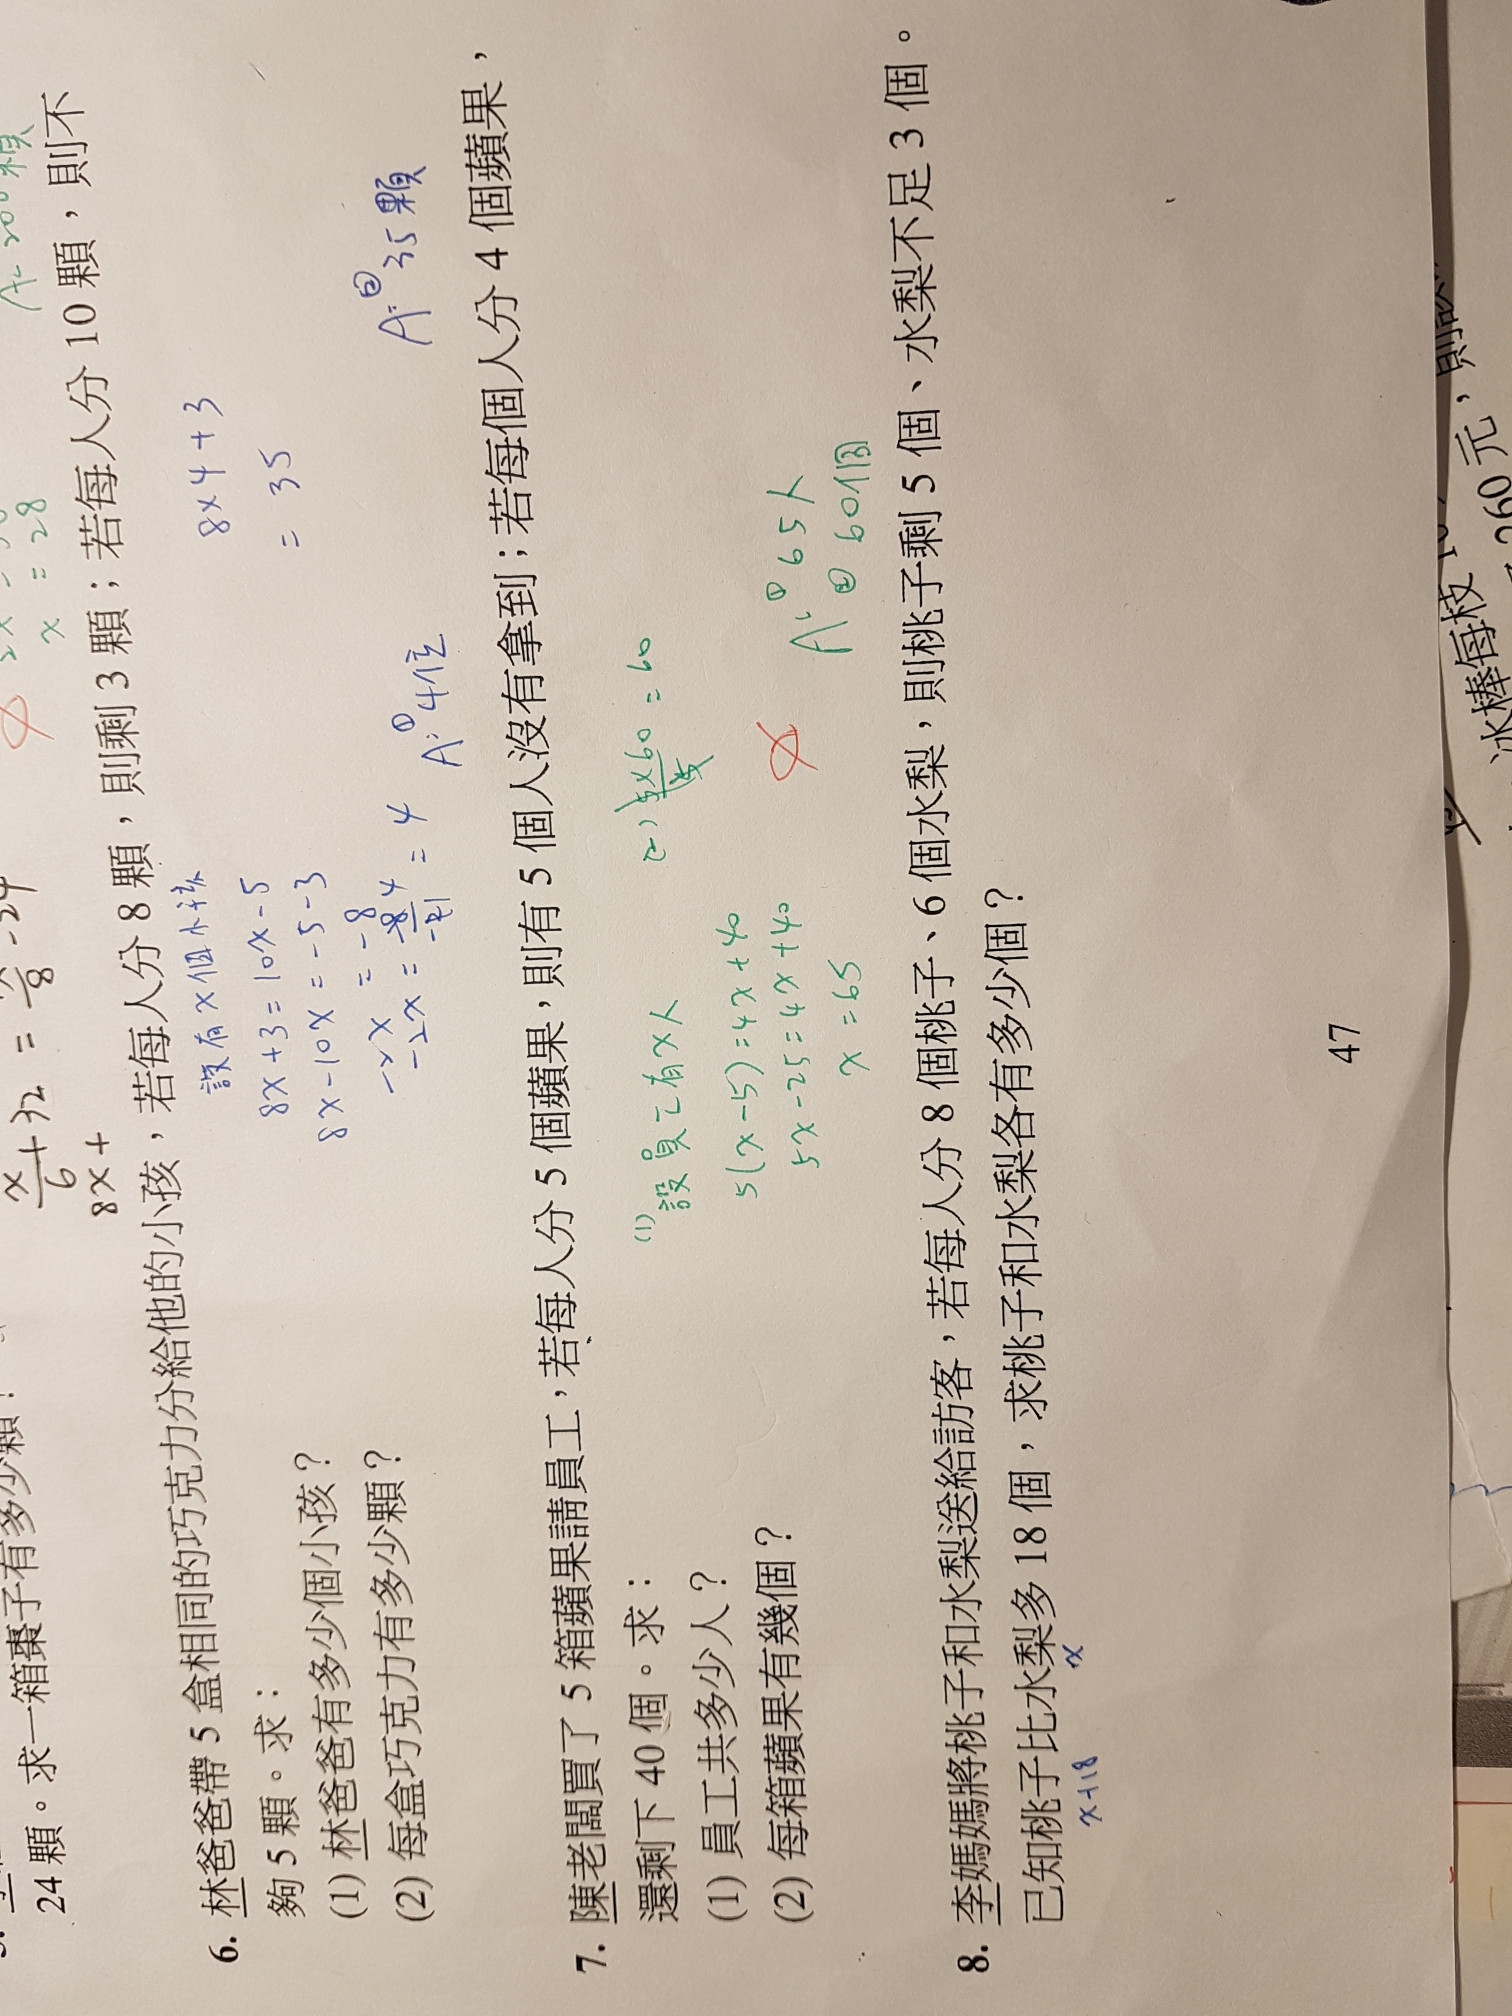 24 顆。求一箱棗子有多少顆？
x/6 + 32 = x/8 - 24
8x +
x = 28
A: 200 顆
6. 林爸爸帶 5 盒相同的巧克力分給他的小孩，若每人分 8 顆，則剩 3 顆；若每人分 10 顆，則不
夠 5 顆。求：
(1) 林爸爸有多少個小孩？
(2) 每盒巧克力有多少顆？
設有 x 個小孩
8x + 3 = 10x - 5
8x - 10x = -5 - 3
-2x = -8
= 4
A: ① 4位
8×4+3
= 35
A: ② 35 顆
7. 陳老闆買了 5 箱蘋果請員工，若每人分 5 個蘋果，則有 5 個人沒有拿到；若每個人分 4 個蘋果，
還剩下 40 個。求：
(1) 員工共多少人？
(2) 每箱蘋果有幾個？
(1)
設員工有 x 人
5(x-5) = 4x + 40
5x - 25 = 4x + 40
x = 65
(2) 5×60/5 = 60
A: ① 65人
② 60個
8. 李媽媽將桃子和水梨送給訪客，若每人分 8 個桃子、6 個水梨，則桃子剩 5 個、水梨不足 3 個。
已知桃子比水梨多 18 個，求桃子和水梨各有多少個？
x+18 x
47
冰棒每枝
260 元，則